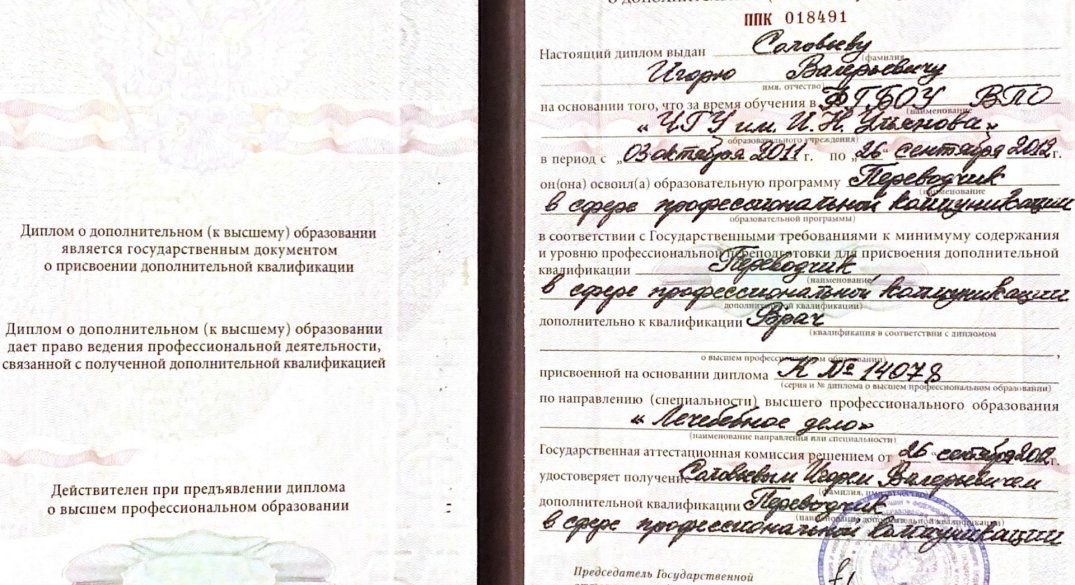 Диплом о дополнительном (к высшему) образовании
является государственным документом
о присвоении дополнительной квалификации
Диплом о дополнительном (к высшему) образовании
дает право ведения профессиональной деятельности,
связанной с полученной дополнительной квалификацией
Действителен при предъявлении диплома
о высшем профессиональном образовании
ППК 018491
Настоящий диплом выдан Соловьеву
(фамилия,
Игорю Валерьевичу
имя, отчество)
на основании того, что за время обучения в ФГБОУ ВПО
(наименование
«ЧГУ им. И. Н. Ульянова»
образовательного учреждения)
в период с „03 октября 2011 г. по „26“ сентября 2012г.
он(она) освоил(а) образовательную программу Переводчик
(наименование
в сфере профессиональной коммуникации
образовательной программы)
в соответствии с Государственными требованиями к минимуму содержания
и уровню профессиональной переподготовки для присвоения дополнительной
квалификации Переводчик
(наименование
в сфере профессиональной коммуникации
дополнительной квалификации)
дополнительно к квалификации Врач
(квалификация в соответствии с дипломом
о высшем профессиональном образовании)
присвоенной на основании диплома К № 14078
(серия и № диплома о высшем профессиональном образовании)
по направлению (специальности) высшего профессионального образования
«Лечебное дело»
(наименование направления или специальности)
Государственная аттестационная комиссия решением от „26“ сентября 2012г.
удостоверяет получение Соловьевым Игорем Валерьевичем
(фамилия, имя, отчество)
дополнительной квалификации Переводчик
(наименование дополнительной квалификации)
в сфере профессиональной коммуникации
Председатель Государственной